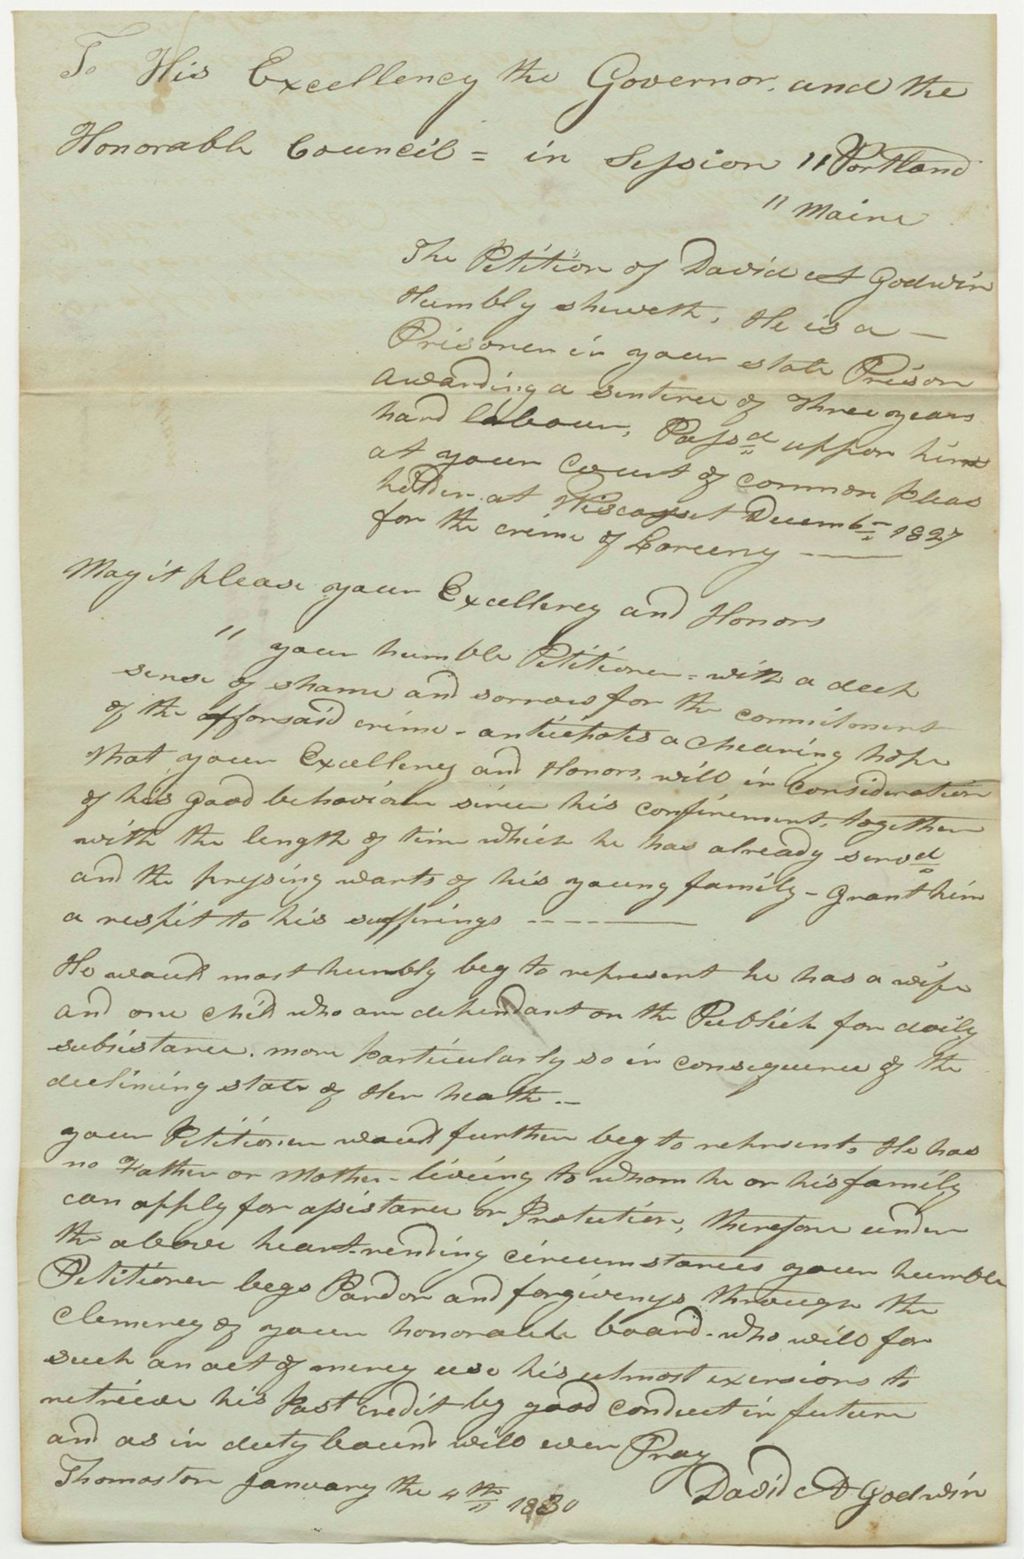 To His Excellency the Governor, and the
Honorable Council = in Session " Portland
" Maine
The Petition of David A Godwin
Humbly sheweth, He is a —
Prisoner in your state Prison
awarding a sentence of three years
hard labour, Passd uppon him
at your Court of common pleas
holden at Wiscasset Decembr 1827
for the crime of Larceny ———
May it please your Excellency and Honors
" your humble Petitioner = with a deep
sense of shame and sorrow for the commitment
of the afforsaid crime - antichates a chearing hope
that your Excellency and Honors, will in consideration
of his good behaviour since his confinement, together
with the length of time which he has already servd
and the pressing wants of his young family - grant him
a respit to his sufferings - - - - ———
He would most humbly beg to represent he has a wife
and one child who are dependant on the Publick for daily
subsistance. more particularly so in consequence of the
declining state of Her heath. —
your Petitioner would further beg to represent, He has
no Father or Mother - liveing to whom he or his family
can apply for assistance or Protection, therefore under
the above heart-rending circumstances your humble
Petitioner begs Pardon and forgiveness through the
Clemency of your honorable board - who will for
such an act of mercy use his utmost exersions to
retrieve his past credit by good conduct in future
and as in duty bound will ever Pray
Thomaston January the 4th 1830
David A Godwin